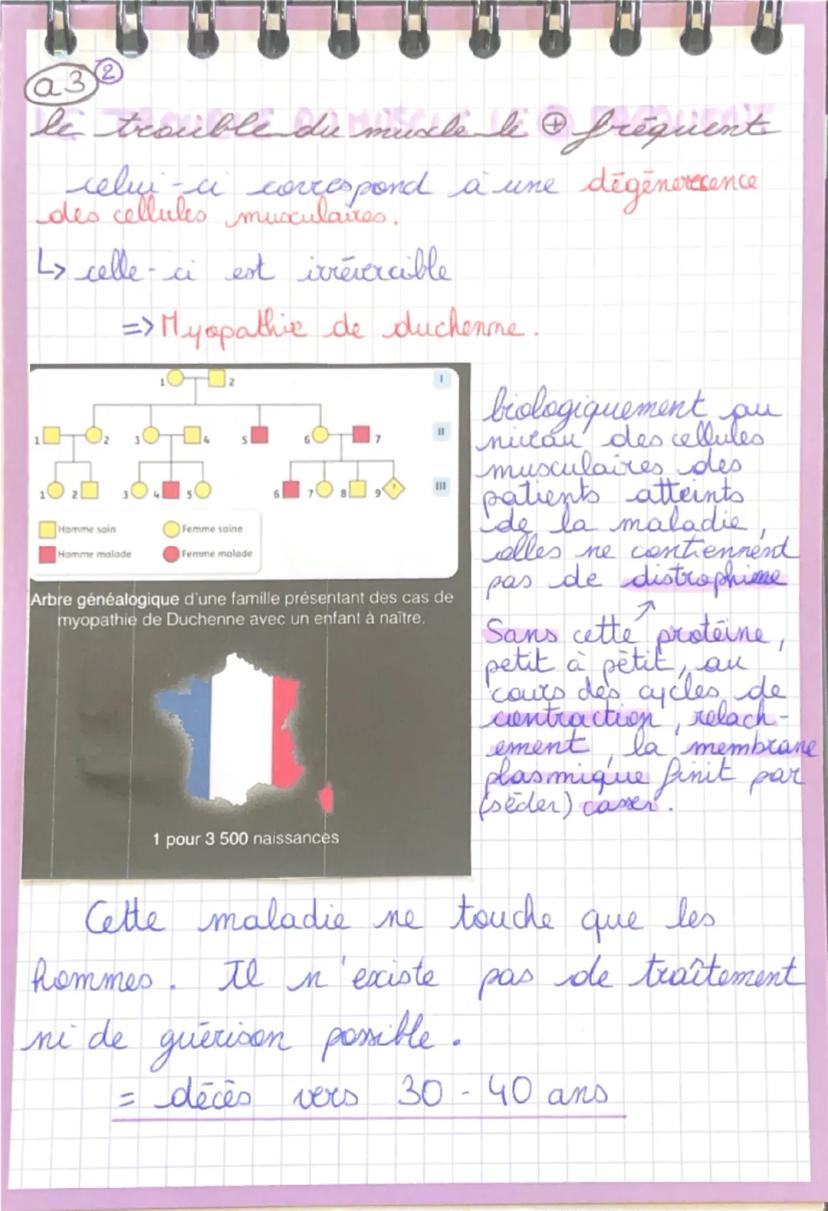 a3 ②
le trouble du muscle le ⊕ fréquent
celui-ci correspond à une dégénerescence
des cellules musculaires.
↳ celle-ci est irréversible
=> Myopathie de duchenne.
1 2 I
1 2 3 4 5 6 7 II
1 2 3 4 5 6 7 8 9 ? III
Homme sain Femme saine
Homme malade Femme malade
Arbre généalogique d'une famille présentant des cas de
myopathie de Duchenne avec un enfant à naître.
1 pour 3 500 naissances
biologiquement au
niveau des cellules
musculaires des
patients atteints
de la maladie,
elles ne contiennend
pas de distrophine
Sans cette protéine,
petit à pètit, au
cours des cycles de
contraction, relach-
ement, la membrane
plasmique finit par
(séder) casser.
Cette maladie ne touche que les
hommes. Il n'existe pas de traîtement
ni de guérison possible.
= décès vers 30 - 40 ans